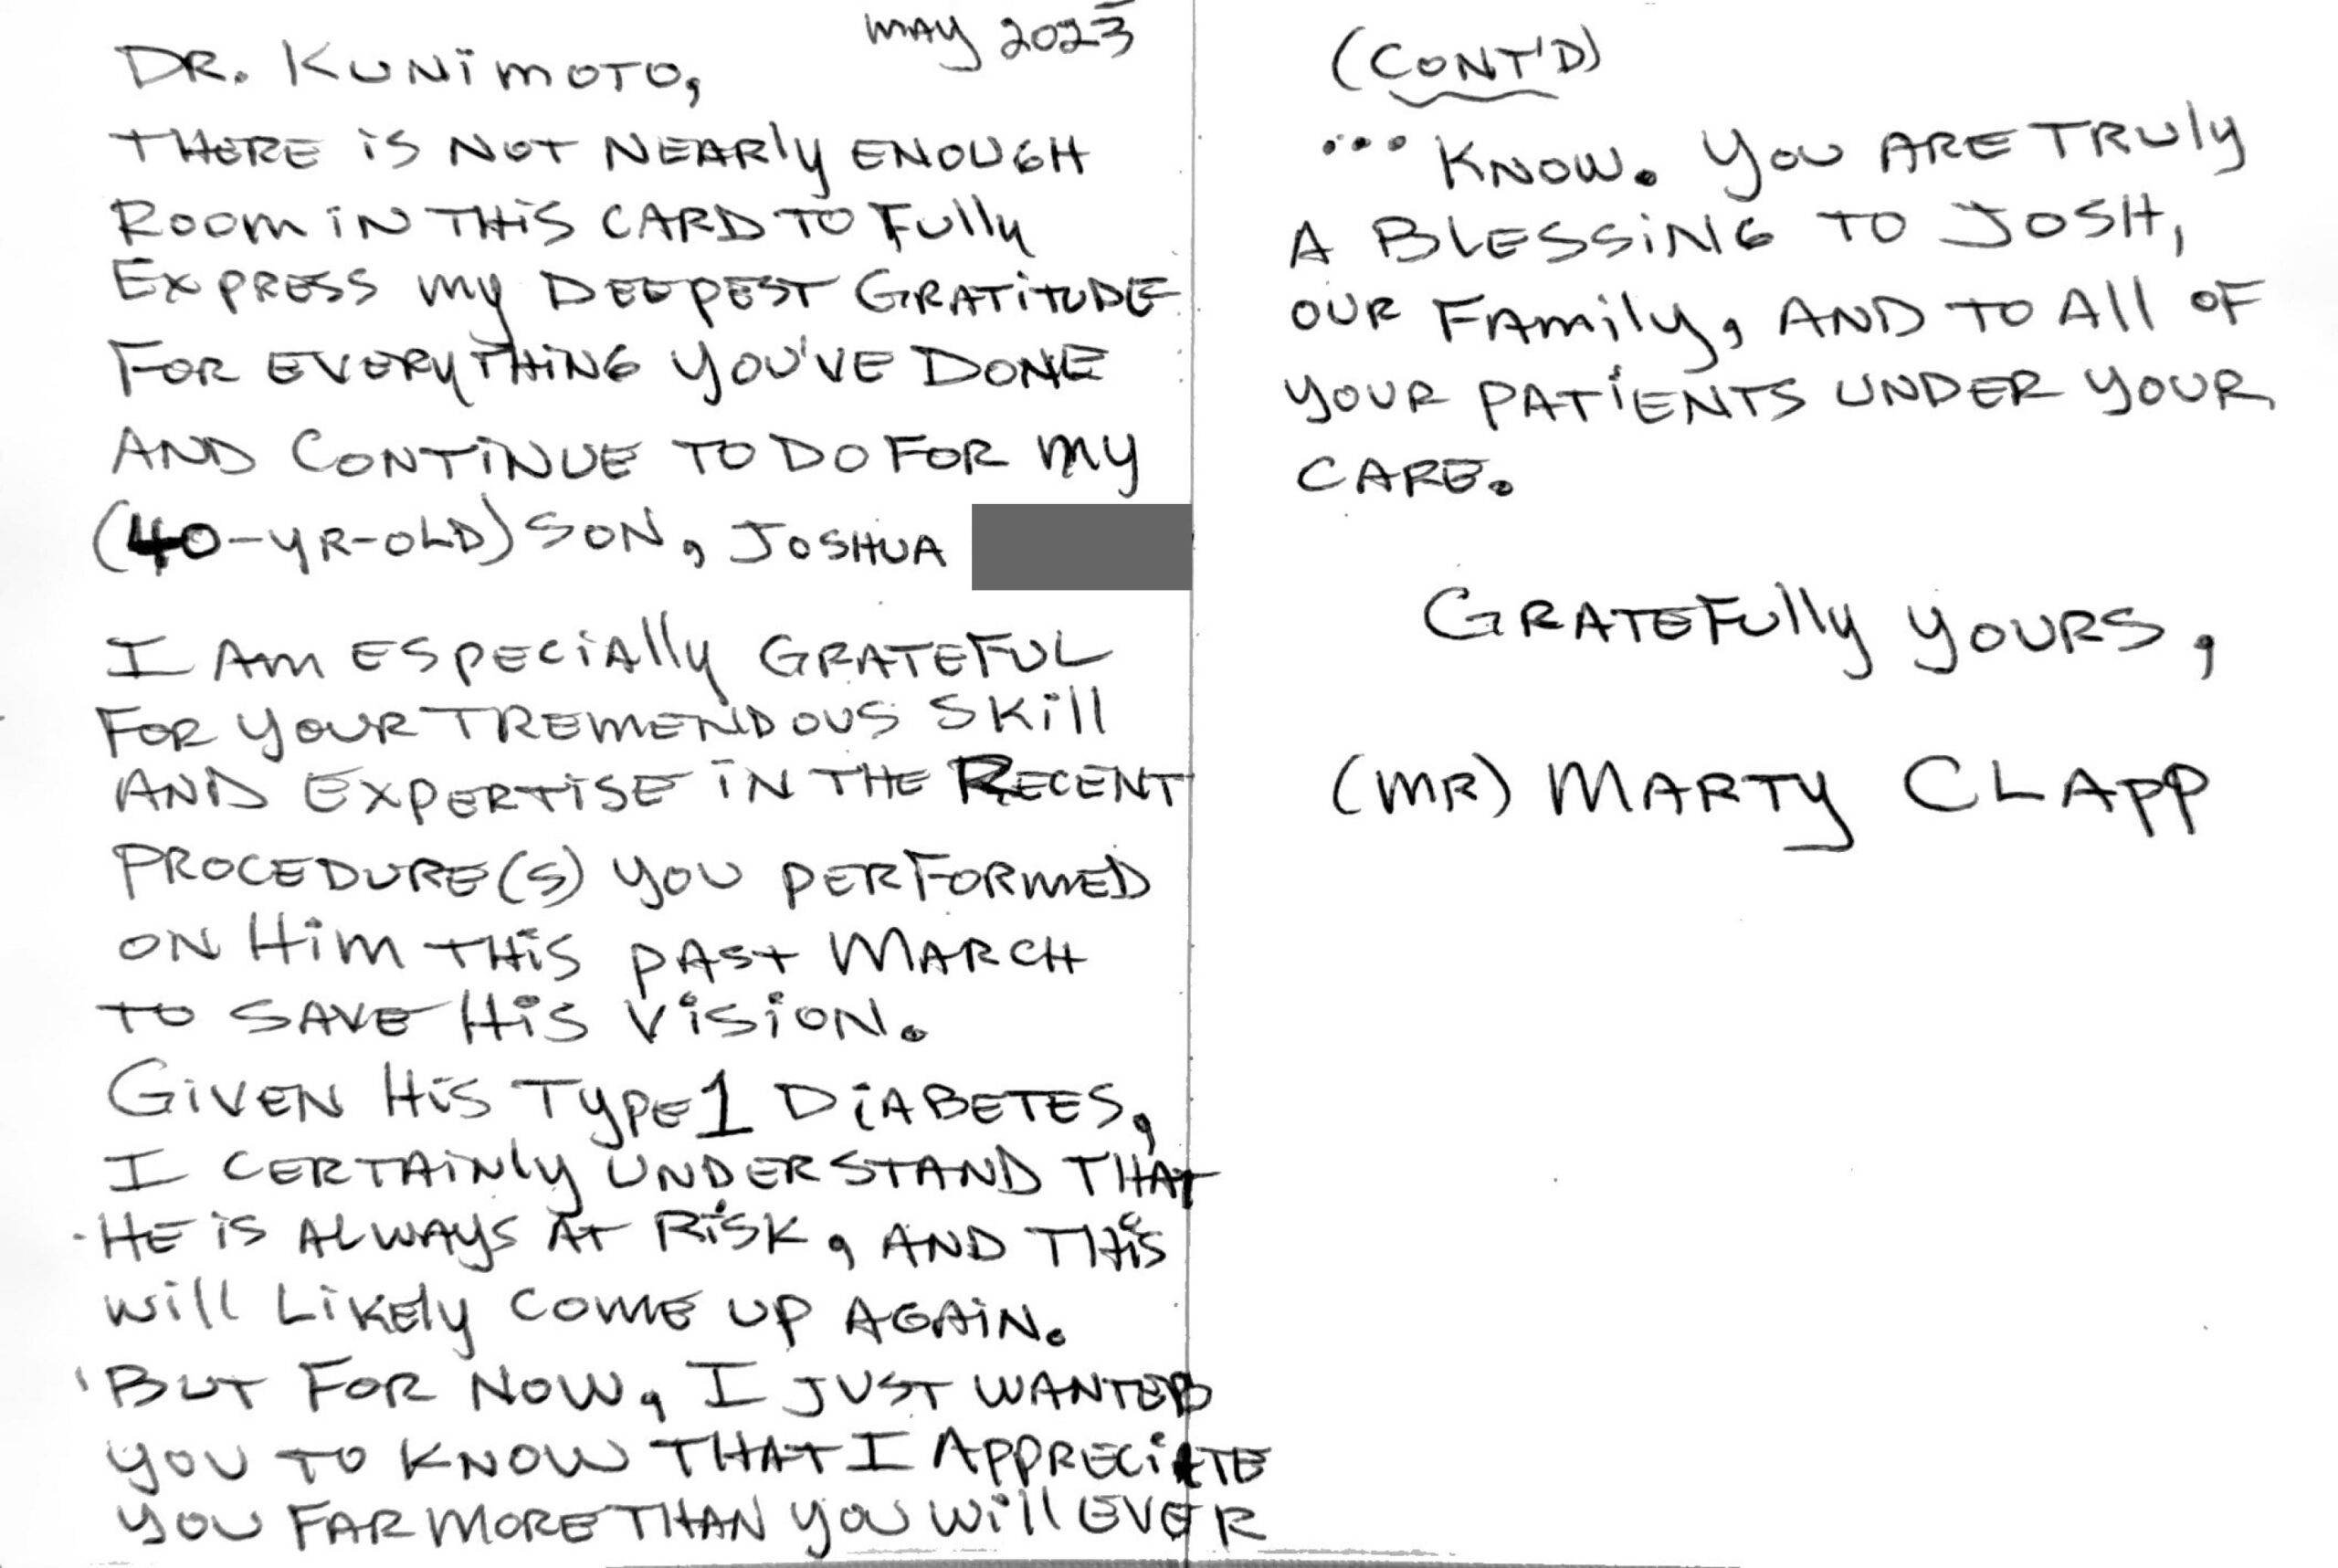 May 2023
Dr. Kunimoto,
There is not nearly enough
room in this card to fully
express my deepest gratitude
for everything you've done
and continue to do for my
(40-yr-old) son, Joshua
I am especially grateful
for your tremendous skill
and expertise in the recent
procedure(s) you performed
on him this past March
to save his vision.
Given his Type 1 diabetes,
I certainly understand that
he is always at risk, and this
will likely come up again.
But for now, I just wanted
you to know that I appreciate
you far more than you will ever
(cont'd)
... know. You are truly
a blessing to Josh,
our family, and to all of
your patients under your
care.
Gratefully yours,
(Mr) Marty Clapp